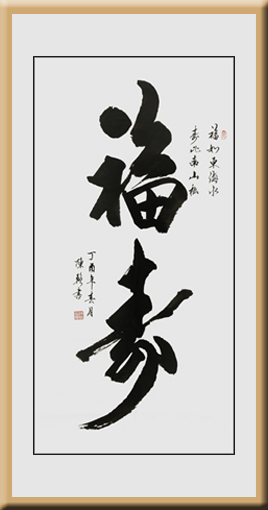 福寿
福如東海水
寿比南山松
丁酉年春月
書